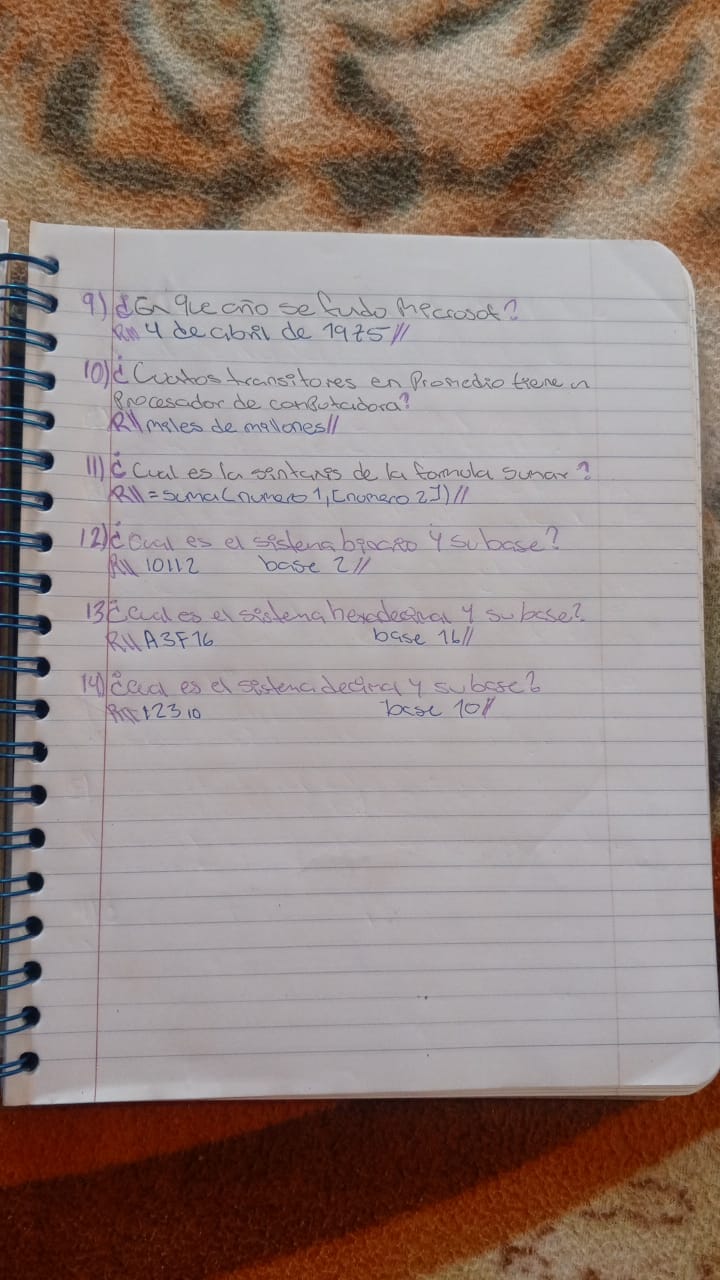 9) ¿En que año se fundo Mecrosot?
R// 4 de abril de 1975//
10) ¿Cuantos transitores en Promedio tiene un
Procesador de computadora?
R// meles de mellones//
11) ¿Cual es la sintaxis de la formula sumar?
R// =suma(numero 1,[numero 2])//
12) ¿Cual es el sistema binario y su base?
R// 10112 base 2//
13 ¿Cual es el sistema hexadecimal y su base?
R// A3F16 base 16//
14) ¿Cual es el sistema decimal y su base?
R// 12310 base 10//